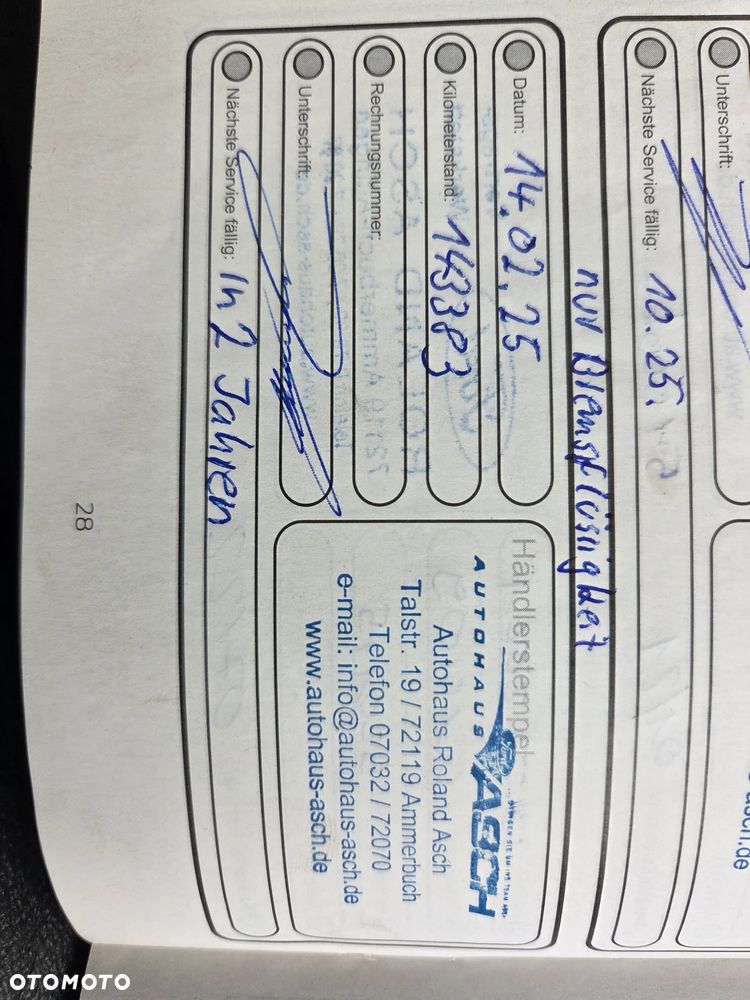 Unterschrift:
Nächste Service fällig: 10.25.
nur Bremsflüssigkeit
Datum: 14.02.25
Kilometerstand: 143383
Rechnungsnummer:
Unterschrift:
Nächste Service fällig: In 2 Jahren
Händlerstempel
AUTOHAUS ASCH
Ford
Autohaus Roland Asch
Talstr. 19 / 72119 Ammerbuch
Telefon 07032 / 72070
e-mail: info@autohaus-asch.de
www.autohaus-asch.de
28
OTOMOTO